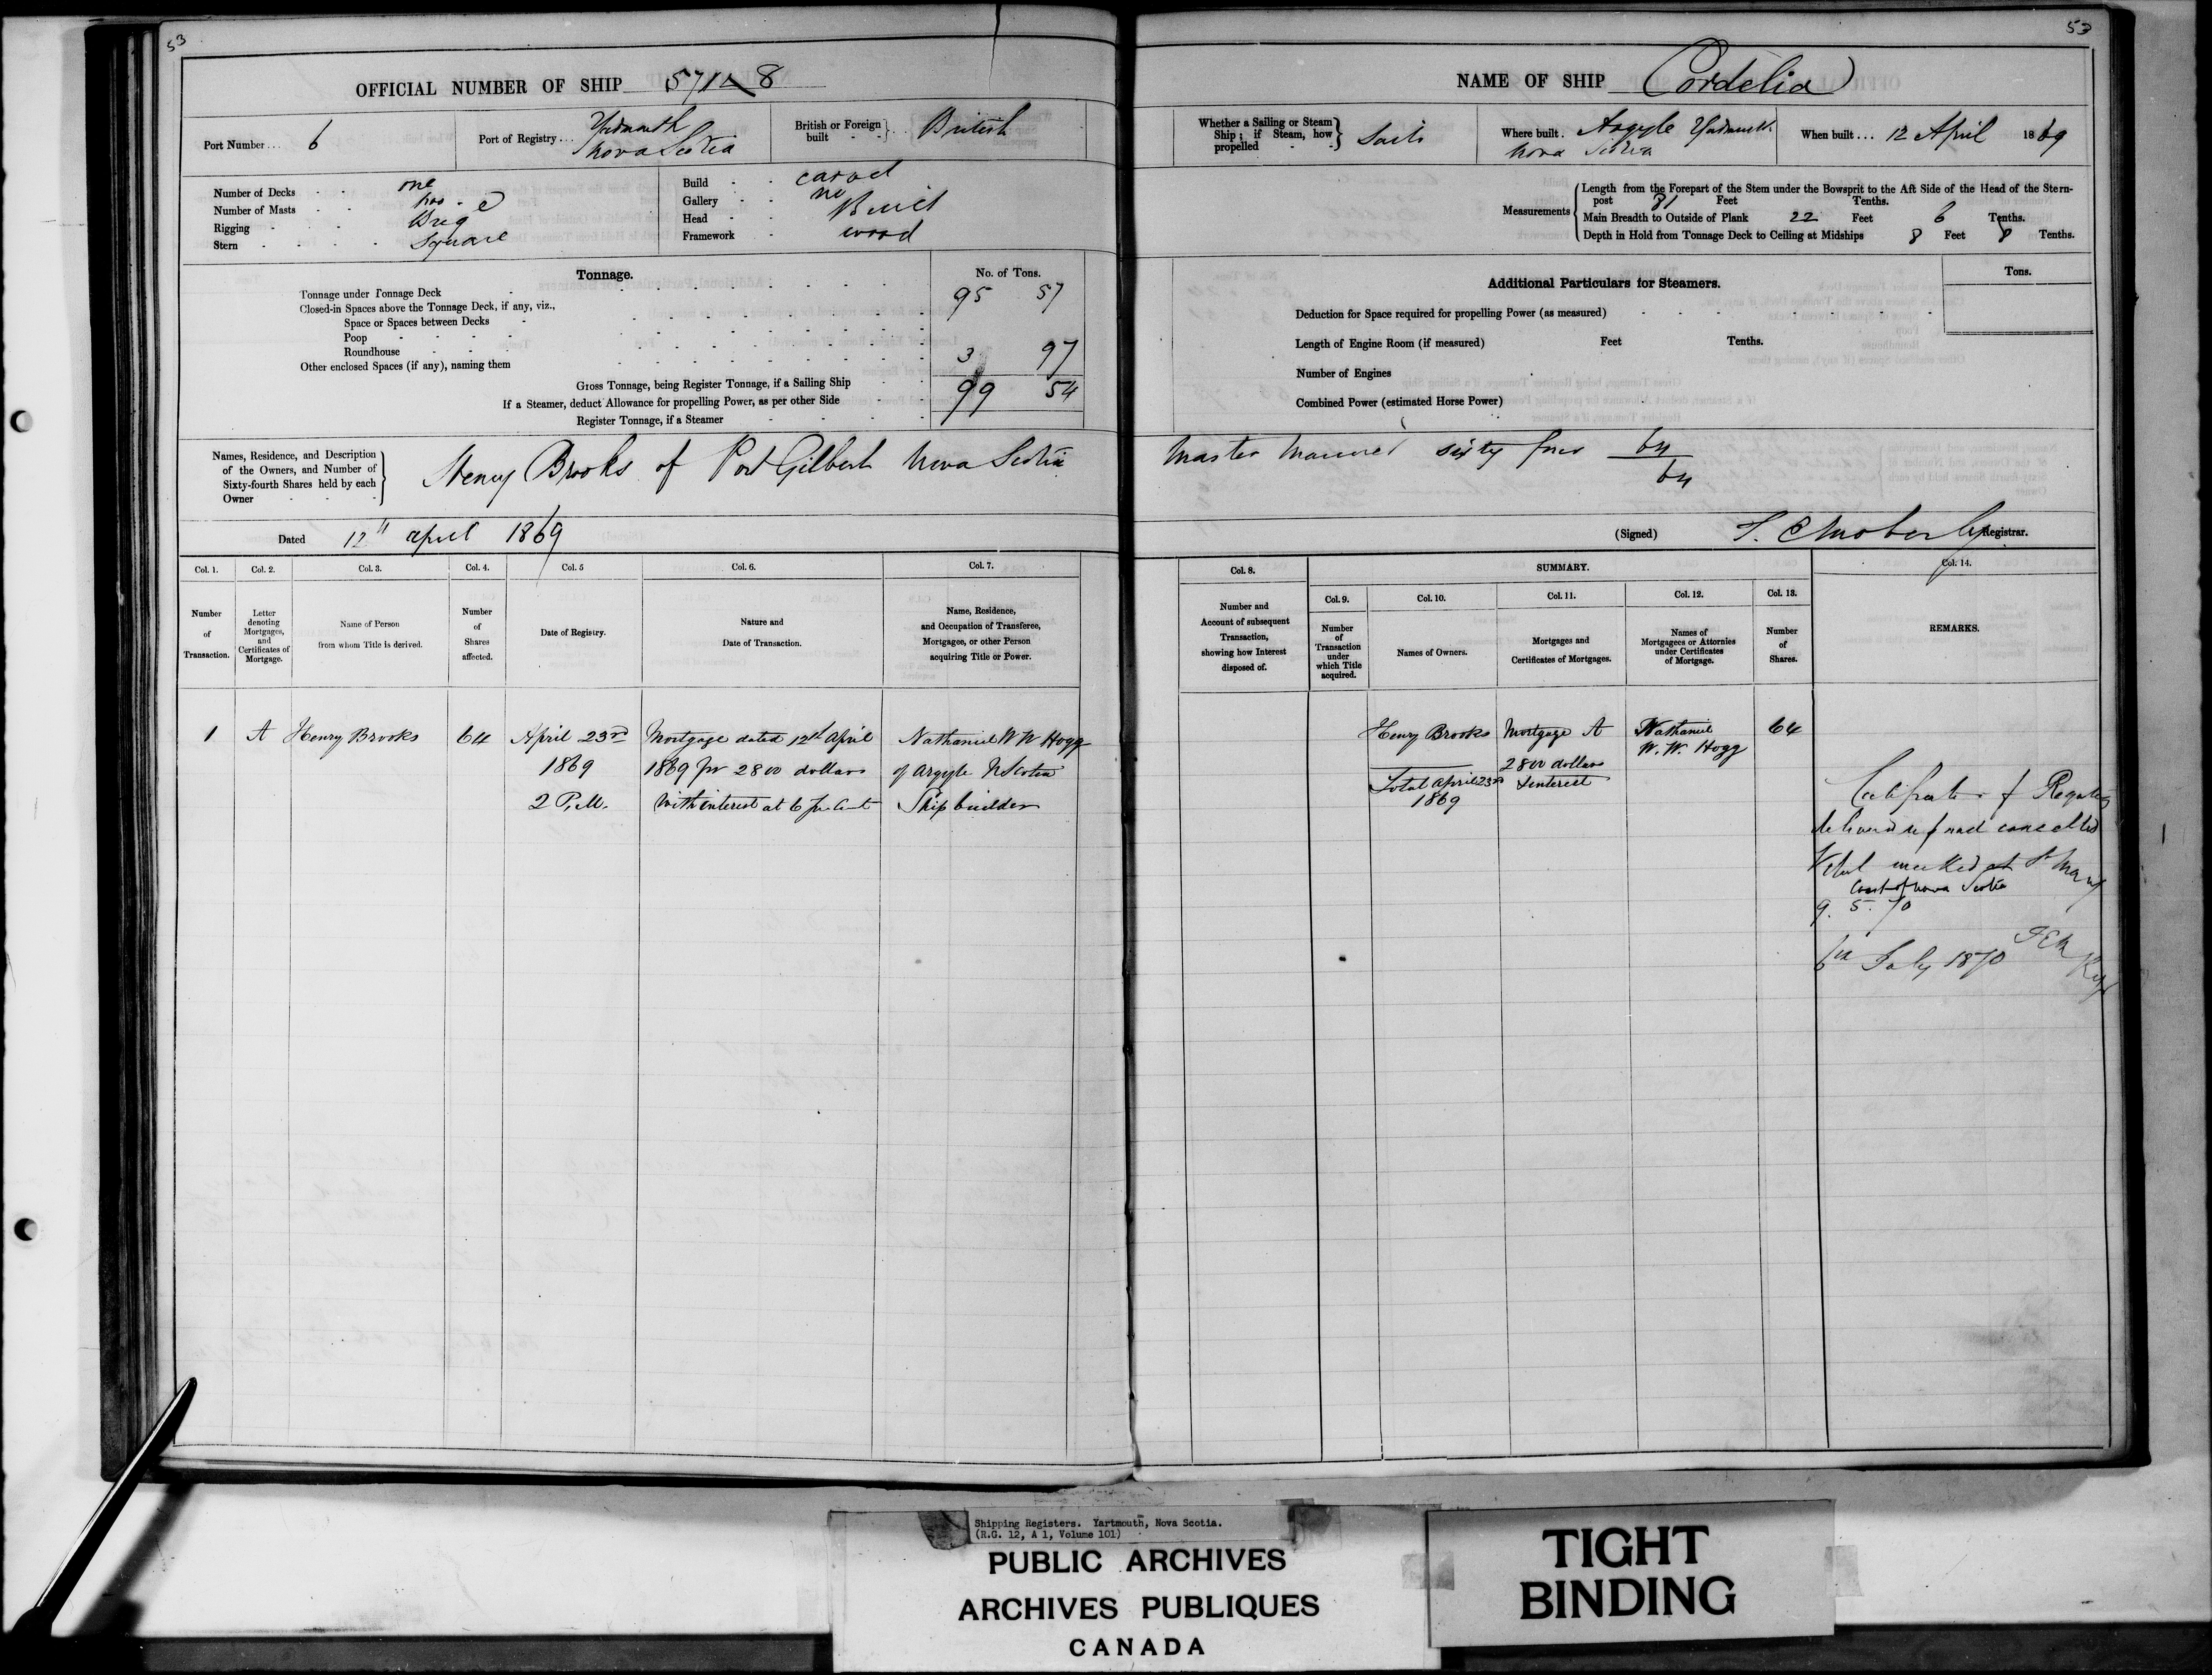 53
OFFICIAL NUMBER OF SHIP 571 8
Port Number... 6
Port of Registry... Yarmouth Nova Scotia
British or Foreign built British
Number of Decks one
Number of Masts
Rigging Brig
Stern Square
Build carvel
Gallery no
Head
Framework wood
Tonnage. No. of Tons.
Tonnage under Tonnage Deck 95 57
Closed-in Spaces above the Tonnage Deck, if any, viz.,
Space or Spaces between Decks
Poop
Roundhouse 3 97
Other enclosed Spaces (if any), naming them
Gross Tonnage, being Register Tonnage, if a Sailing Ship 99 54
If a Steamer, deduct Allowance for propelling Power, as per other Side
Register Tonnage, if a Steamer
Names, Residence, and Description
of the Owners, and Number of
Sixty-fourth Shares held by each
Owner
Henry Brooks of Port Gilbert Nova Scotia
Dated 12th april 1869
Col. 1. Col. 2. Col. 3. Col. 4. Col. 5 Col. 6. Col. 7.
Number of Transaction.
Letter denoting Mortgages, and Certificates of Mortgage.
Name of Person from whom Title is derived.
Number of Shares affected.
Date of Registry.
Nature and Date of Transaction.
Name, Residence, and Occupation of Transferee, Mortgagee, or other Person acquiring Title or Power.
1 A Henry Brooks 64 April 23rd Mortgage dated 12th April Nathaniel W W Hogg
1869 1869 for 2800 dollars of Argyle N Scotia
2 P.M. With interest at 6 pr Cent Ship builder
53
NAME OF SHIP Cordelia
Whether a Sailing or Steam Ship; if Steam, how propelled Sails
Where built. Argyle Yarmouth Nova Scotia
When built... 12 April 1869
Measurements
Length from the Forepart of the Stem under the Bowsprit to the Aft Side of the Head of the Stern-
post 81 Feet Tenths.
Main Breadth to Outside of Plank 22 Feet 6 Tenths.
Depth in Hold from Tonnage Deck to Ceiling at Midships 8 Feet 8 Tenths.
Additional Particulars for Steamers. Tons.
Deduction for Space required for propelling Power (as measured)
Length of Engine Room (if measured) Feet Tenths.
Number of Engines
Combined Power (estimated Horse Power)
Master Mariner sixty four 64
64
(Signed) Registrar.
Col. 8. SUMMARY. Col. 14.
Col. 9. Col. 10. Col. 11. Col. 12. Col. 13.
Number and Account of subsequent Transaction, showing how Interest disposed of.
Number of Transaction under which Title acquired.
Names of Owners.
Mortgages and Certificates of Mortgages.
Names of Mortgagees or Attornies under Certificates of Mortgage.
Number of Shares.
REMARKS.
Henry Brooks Mortgage A Nathaniel 64
W. W. Hogg
2800 dollars
Total April 23rd & interest
1869
Certificate of Registry
delivered up and cancelled
Vessel wrecked at St Mary
Coast of Nova Scotia
9. 5. 70
July 1870
Shipping Registers. Yartmouth, Nova Scotia.
(R.G. 12, A 1, Volume 101)
PUBLIC ARCHIVES
ARCHIVES PUBLIQUES
CANADA
TIGHT
BINDING